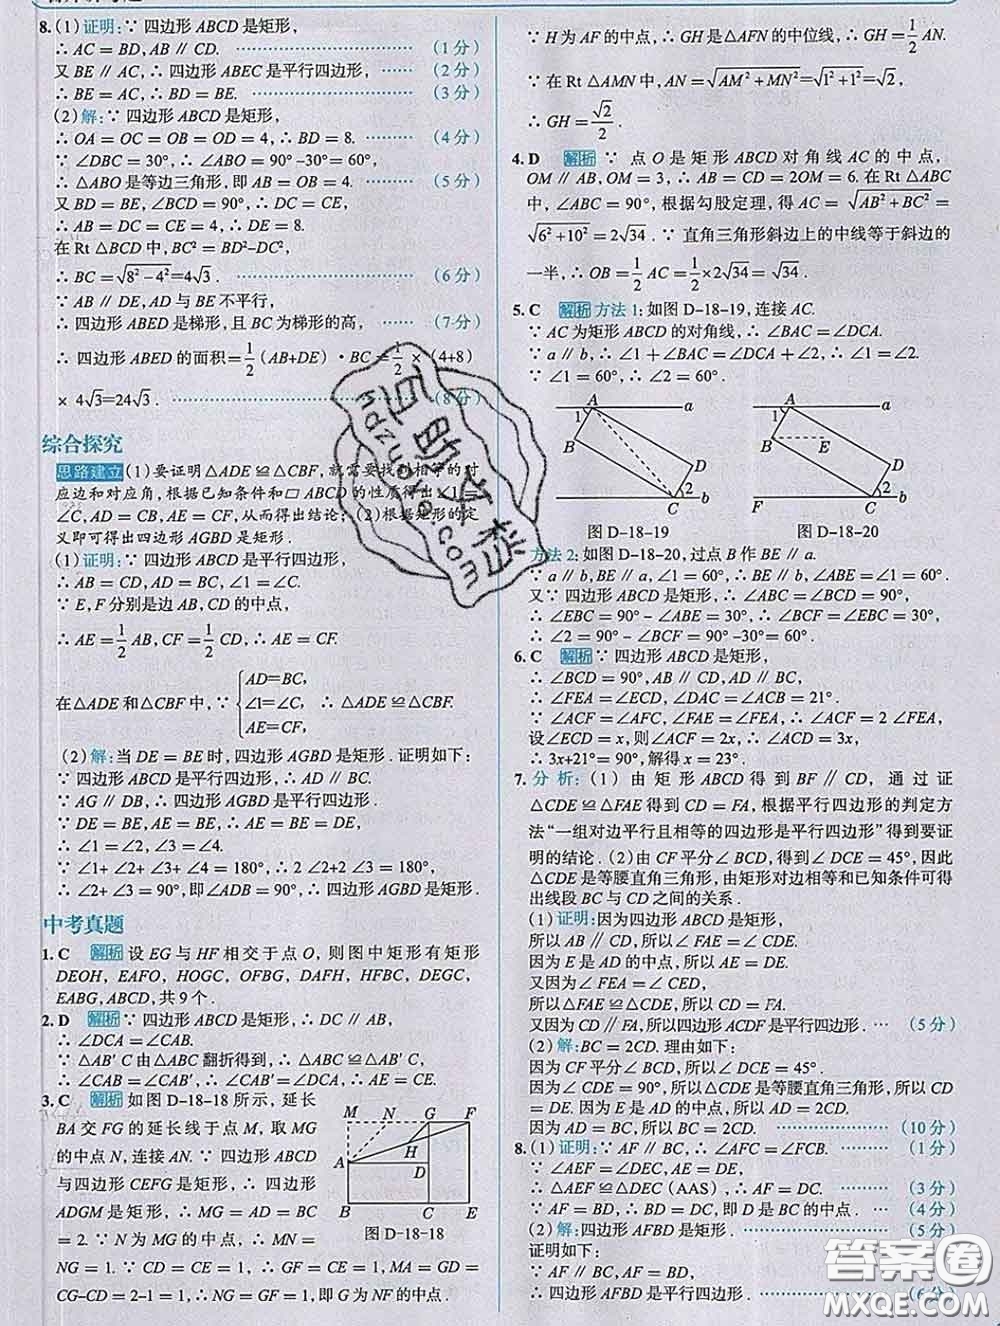 8.(1)证明:∵ 四边形ABCD是矩形,
∴ AC=BD,AB∥CD. ………… (1分)
又BE∥AC,∴ 四边形ABEC是平行四边形, …… (2分)
∴ BE=AC,∴ BD=BE. ………… (3分)
(2)解:∵ 四边形ABCD是矩形,
∴ OA=OC=OB=OD=4,∴ BD=8. ……… (4分)
∵ ∠DBC=30°,∴ ∠ABO=90°-30°=60°,
∴ △ABO是等边三角形,即AB=OB=4. ……… (5分)
又BD=BE,∠BCD=90°,∴ DC=CE,
∴ AB=DC=CE=4,∴ DE=8.
在Rt△BCD中,BC²=BD²-DC²,
∴ BC=√(8²-4²)=4√3. ………… (6分)
∵ AB∥DE,AD与BE不平行,
∴ 四边形ABED是梯形,且BC为梯形的高, …… (7分)
∴ 四边形ABED的面积=1/2(AB+DE)·BC=1/2×(4+8)
×4√3=24√3. ………… (8分)
综合探究
思路建立 (1)要证明△ADE≌△CBF,就需要找到相等的对
应边和对应角,根据已知条件和▱ABCD的性质得出∠1=
∠C,AD=CB,AE=CF,从而得出结论;(2)根据矩形的定
义即可得出四边形AGBD是矩形.
(1)证明:∵ 四边形ABCD是平行四边形,
∴ AB=CD,AD=BC,∠1=∠C.
∵ E,F分别是边AB,CD的中点,
∴ AE=1/2 AB,CF=1/2 CD,∴ AE=CF.
在△ADE和△CBF中,∵ {AD=BC, ∠1=∠C, AE=CF, ∴ △ADE≌△CBF.
(2)解:当DE=BE时,四边形AGBD是矩形. 证明如下:
∵ 四边形ABCD是平行四边形,∴ AD∥BC.
∵ AG∥DB,∴ 四边形AGBD是平行四边形.
∵ DE=BE,AE=BE,∴ AE=BE=DE,
∴ ∠1=∠2,∠3=∠4.
∵ ∠1+∠2+∠3+∠4=180°,∴ 2∠2+2∠3=180°,
∴ ∠2+∠3=90°,即∠ADB=90°,∴ 四边形AGBD是矩形.
中考真题
1.C 解析 设EG与HF相交于点O,则图中矩形有矩形
DEOH,EAFO,HOGC,OFBG,DAFH,HFBC,DEGC,
EABG,ABCD,共9个.
2.D 解析 ∵ 四边形ABCD是矩形,∴ DC∥AB,
∴ ∠DCA=∠CAB.
∵ △AB′C由△ABC翻折得到,∴ △ABC≌△AB′C,
∴ ∠CAB=∠CAB′,∴ ∠DCA=∠CAB′.
3.C 解析 如图D-18-18所示,延长
BA交FG的延长线于点M,取MG
的中点N,连接AN.∵ 四边形ABCD
与四边形CEFG是矩形,∴ 四边形
ADGM是矩形,∴ MG=AD=BC
=2.∵ N为MG的中点,∴ MN=
NG=1.∵ CD=CE=1,∴ GF=CE=1,MA=GD=
CG-CD=2-1=1,∴ NG=GF=1,即G为NF的中点.
M N G F
H
A D
B C E
图D-18-18
∵ H为AF的中点,∴ GH是△AFN的中位线,∴ GH=1/2 AN.
∵ 在Rt△AMN中,AN=√(AM²+MN²)=√(1²+1²)=√2,
∴ GH=√2/2.
4.D 解析 ∵ 点O是矩形ABCD对角线AC的中点,
OM∥AB,OM=3,∴ AB=CD=2OM=6.在Rt△ABC
中,∠ABC=90°,根据勾股定理,得AC=√(AB²+BC²)=
√(6²+10²)=2√34.∵ 直角三角形斜边上的中线等于斜边的
一半,∴ OB=1/2 AC=1/2×2√34=√34.
5.C 解析 方法1:如图D-18-19,连接AC.
∵ AC为矩形ABCD的对角线,∴ ∠BAC=∠DCA.
∵ a∥b,∴ ∠1+∠BAC=∠DCA+∠2,∴ ∠1=∠2.
∵ ∠1=60°,∴ ∠2=60°.
A a
1
B
D
2
C b
图D-18-19
A a
1
B E
D
2
C b
图D-18-20
方法2:如图D-18-20,过点B作BE∥a.
∵ a∥b,BE∥a,∠1=60°,∴ BE∥b,∠ABE=∠1=60°.
又∵ 四边形ABCD是矩形,∴ ∠ABC=∠BCD=90°,
∴ ∠EBC=90°-∠ABE=30°,∴ ∠BCF=∠EBC=30°,
∴ ∠2=90°-∠BCF=90°-30°=60°.
6.C 解析 ∵ 四边形ABCD是矩形,
∴ ∠BCD=90°,AB∥CD,AD∥BC,
∴ ∠FEA=∠ECD,∠DAC=∠ACB=21°.
∵ ∠ACF=∠AFC,∠FAE=∠FEA,∴ ∠ACF=2∠FEA,
设∠ECD=x,则∠ACF=2x,∴ ∠ACD=3x,
∴ 3x+21°=90°,解得x=23°.
7.分析:(1)由矩形ABCD得到BF∥CD,通过证
△CDE≌△FAE得到CD=FA,根据平行四边形的判定方
法“一组对边平行且相等的四边形是平行四边形”得到要证
明的结论.(2)由CF平分∠BCD,得到∠DCE=45°,因此
△CDE是等腰直角三角形,由矩形对边相等和已知条件可得
出线段BC与CD之间的关系.
(1)证明:因为四边形ABCD是矩形,
所以AB∥CD,所以∠FAE=∠CDE.
因为E是AD的中点,所以AE=DE.
又因为∠FEA=∠CED,
所以△FAE≌△CDE,所以CD=FA.
又因为CD∥FA,所以四边形ACDF是平行四边形. … (5分)
(2)解:BC=2CD. 理由如下:
因为CF平分∠BCD,所以∠DCE=45°.
因为∠CDE=90°,所以△CDE是等腰直角三角形,所以CD=DE.
因为E是AD的中点,所以AD=2CD.
因为AD=BC,所以BC=2CD. ………… (10分)
8.(1)证明:∵ AF∥BC,∴ ∠AFC=∠FCB. …… (1分)
∵ ∠AEF=∠DEC,AE=DE,
∴ △AEF≌△DEC(AAS),∴ AF=DC. ……… (3分)
∵ AF=BD,∴ BD=DC,即D是BC的中点. …… (4分)
(2)解:四边形AFBD是矩形. ………… (5分)
证明如下:
∵ AF∥BC,AF=BD,
∴ 四边形AFBD是平行四边形. ………… (6分)
百助文档
hdzuoye.com
答案圈
MXQE.COM